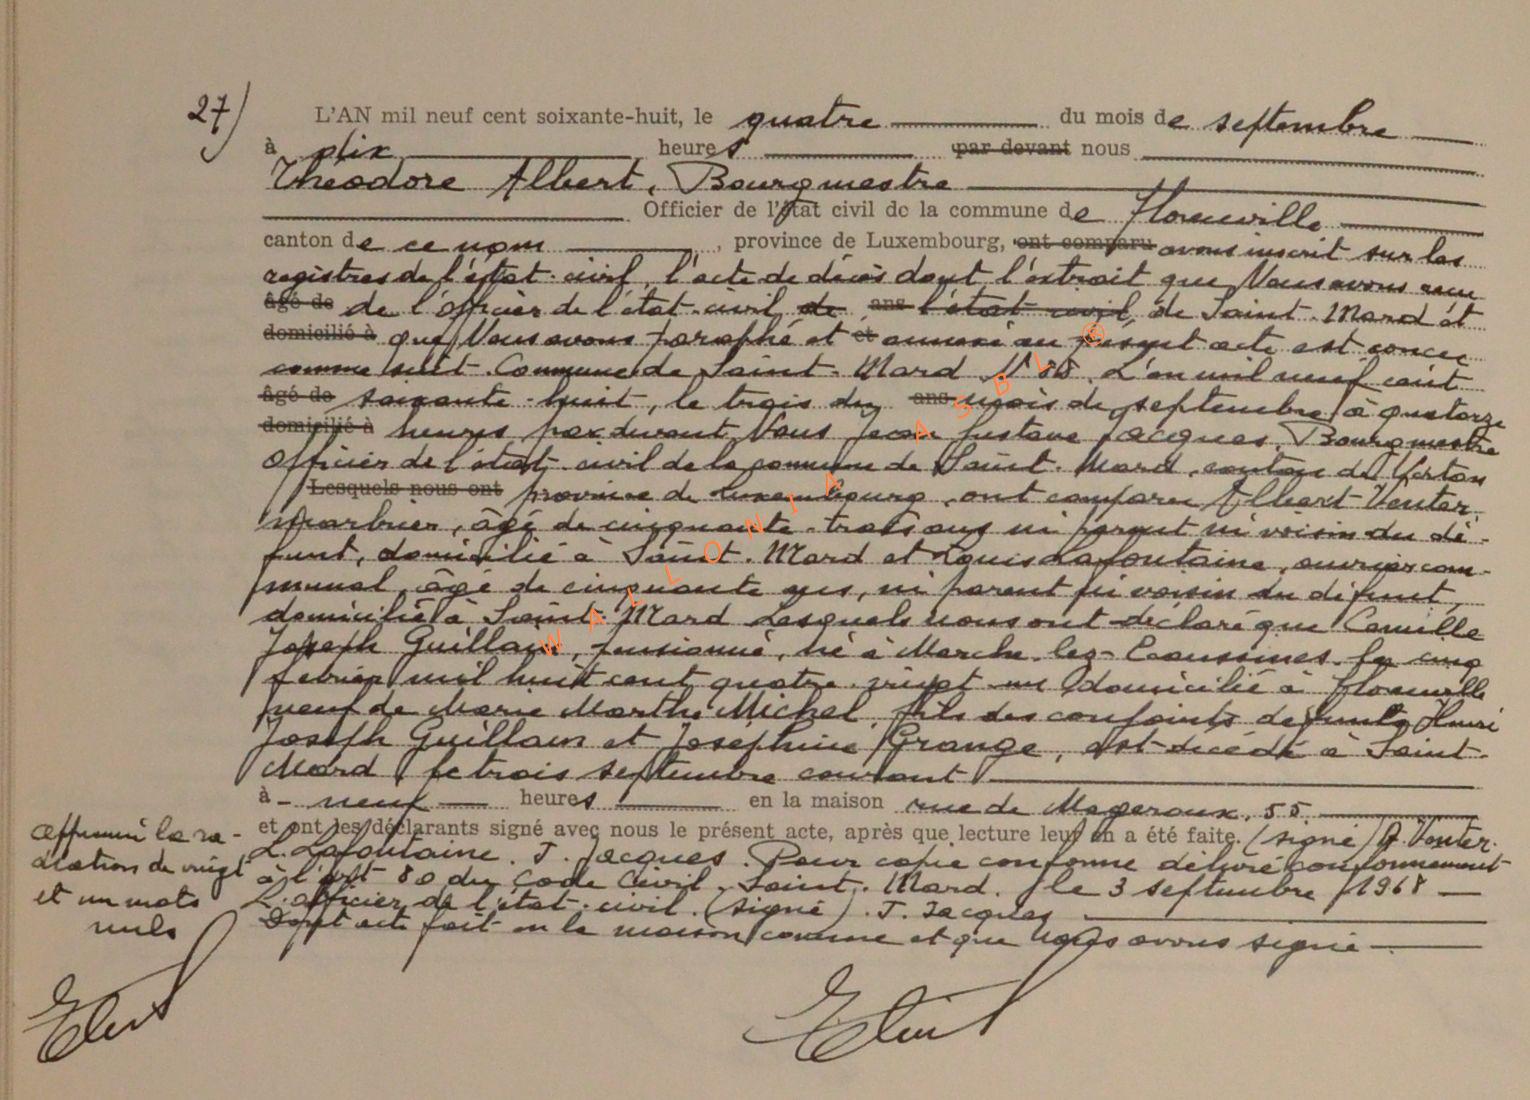 27)
L'AN mil neuf cent soixante-huit, le quatre du mois de septembre
à dix heures par devant nous
Théodore Albert, Bourgmestre
Officier de l'état civil de la commune de Florenville
canton de ce nom, province de Luxembourg, ont comparu avons inscrit sur les
registres de l'état-civil, l'acte de décès dont l'extrait que Nous avons reçu
âgé de de l'officier de l'état-civil de ans l'état civil, de Saint-Mard et
domicilié à que Nous avons paraphé et et annexé au présent acte est conçu
comme suit. Commune de Saint-Mard N° 28. L'an mil neuf cent
âgé de soixante-huit, le trois du ans mois de septembre à quatorze
domicilié à heures, par devant Nous Jean Gustave Jacques, Bourgmestre
officier de l'état-civil de la commune de Saint-Mard, canton de Virton
Lesquels nous ont province de Luxembourg, ont comparu Albert Venter,
marbrier, âgé de cinquante-trois ans ni parent ni voisin du dé-
funt, domicilié à Saint-Mard et Louis Lafontaine, ouvrier com-
munal, âgé de cinquante ans, ni parent ni voisin du défunt,
domicilié à Saint-Mard Lesquels nous ont déclaré que Camille
Joseph Guillaun, pensionné, né à Marche-lez-Ecaussines le cinq
février mil huit cent quatre-vingt-un domicilié à Florenville
veuf de Marie Marthe Michel, fils des conjoints défunts Henri
Joseph Guillaun et Joséphine Grange, est décédé à Saint-
Mard le trois septembre courant
à neuf heures en la maison rue de Mageroux, 55.
et ont les déclarants signé avec nous le présent acte, après que lecture leur en a été faite. (signé) A. Venter.
L. Lafontaine. J. Jacques. Pour copie conforme délivré conformément
à l'art 80 du Code Civil. Saint-Mard. le 3 septembre 1968
L'officier de l'état-civil. (signé). J. Jacques
Dont acte fait en la maison comune et que Nous avons signé
approuvé la ra-
diation de vingt
et un mots
nuls
WALLONIA ASBL ®